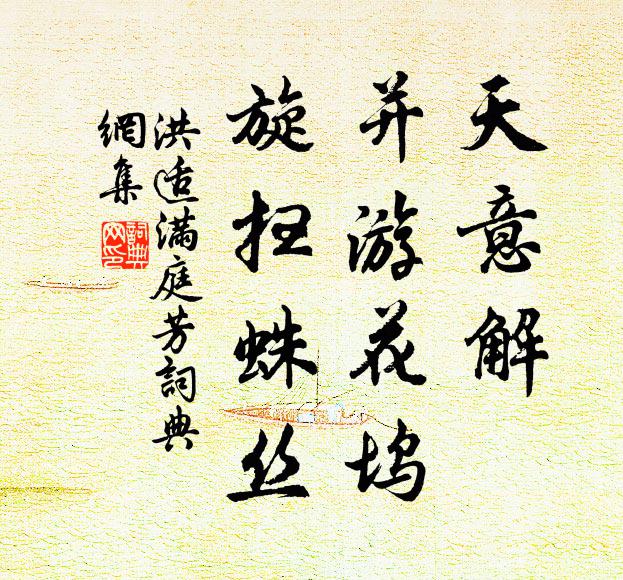 天意解
并游花坞
旋扫蛛丝
洪适满庭芳詞典
網集
詞典
网印